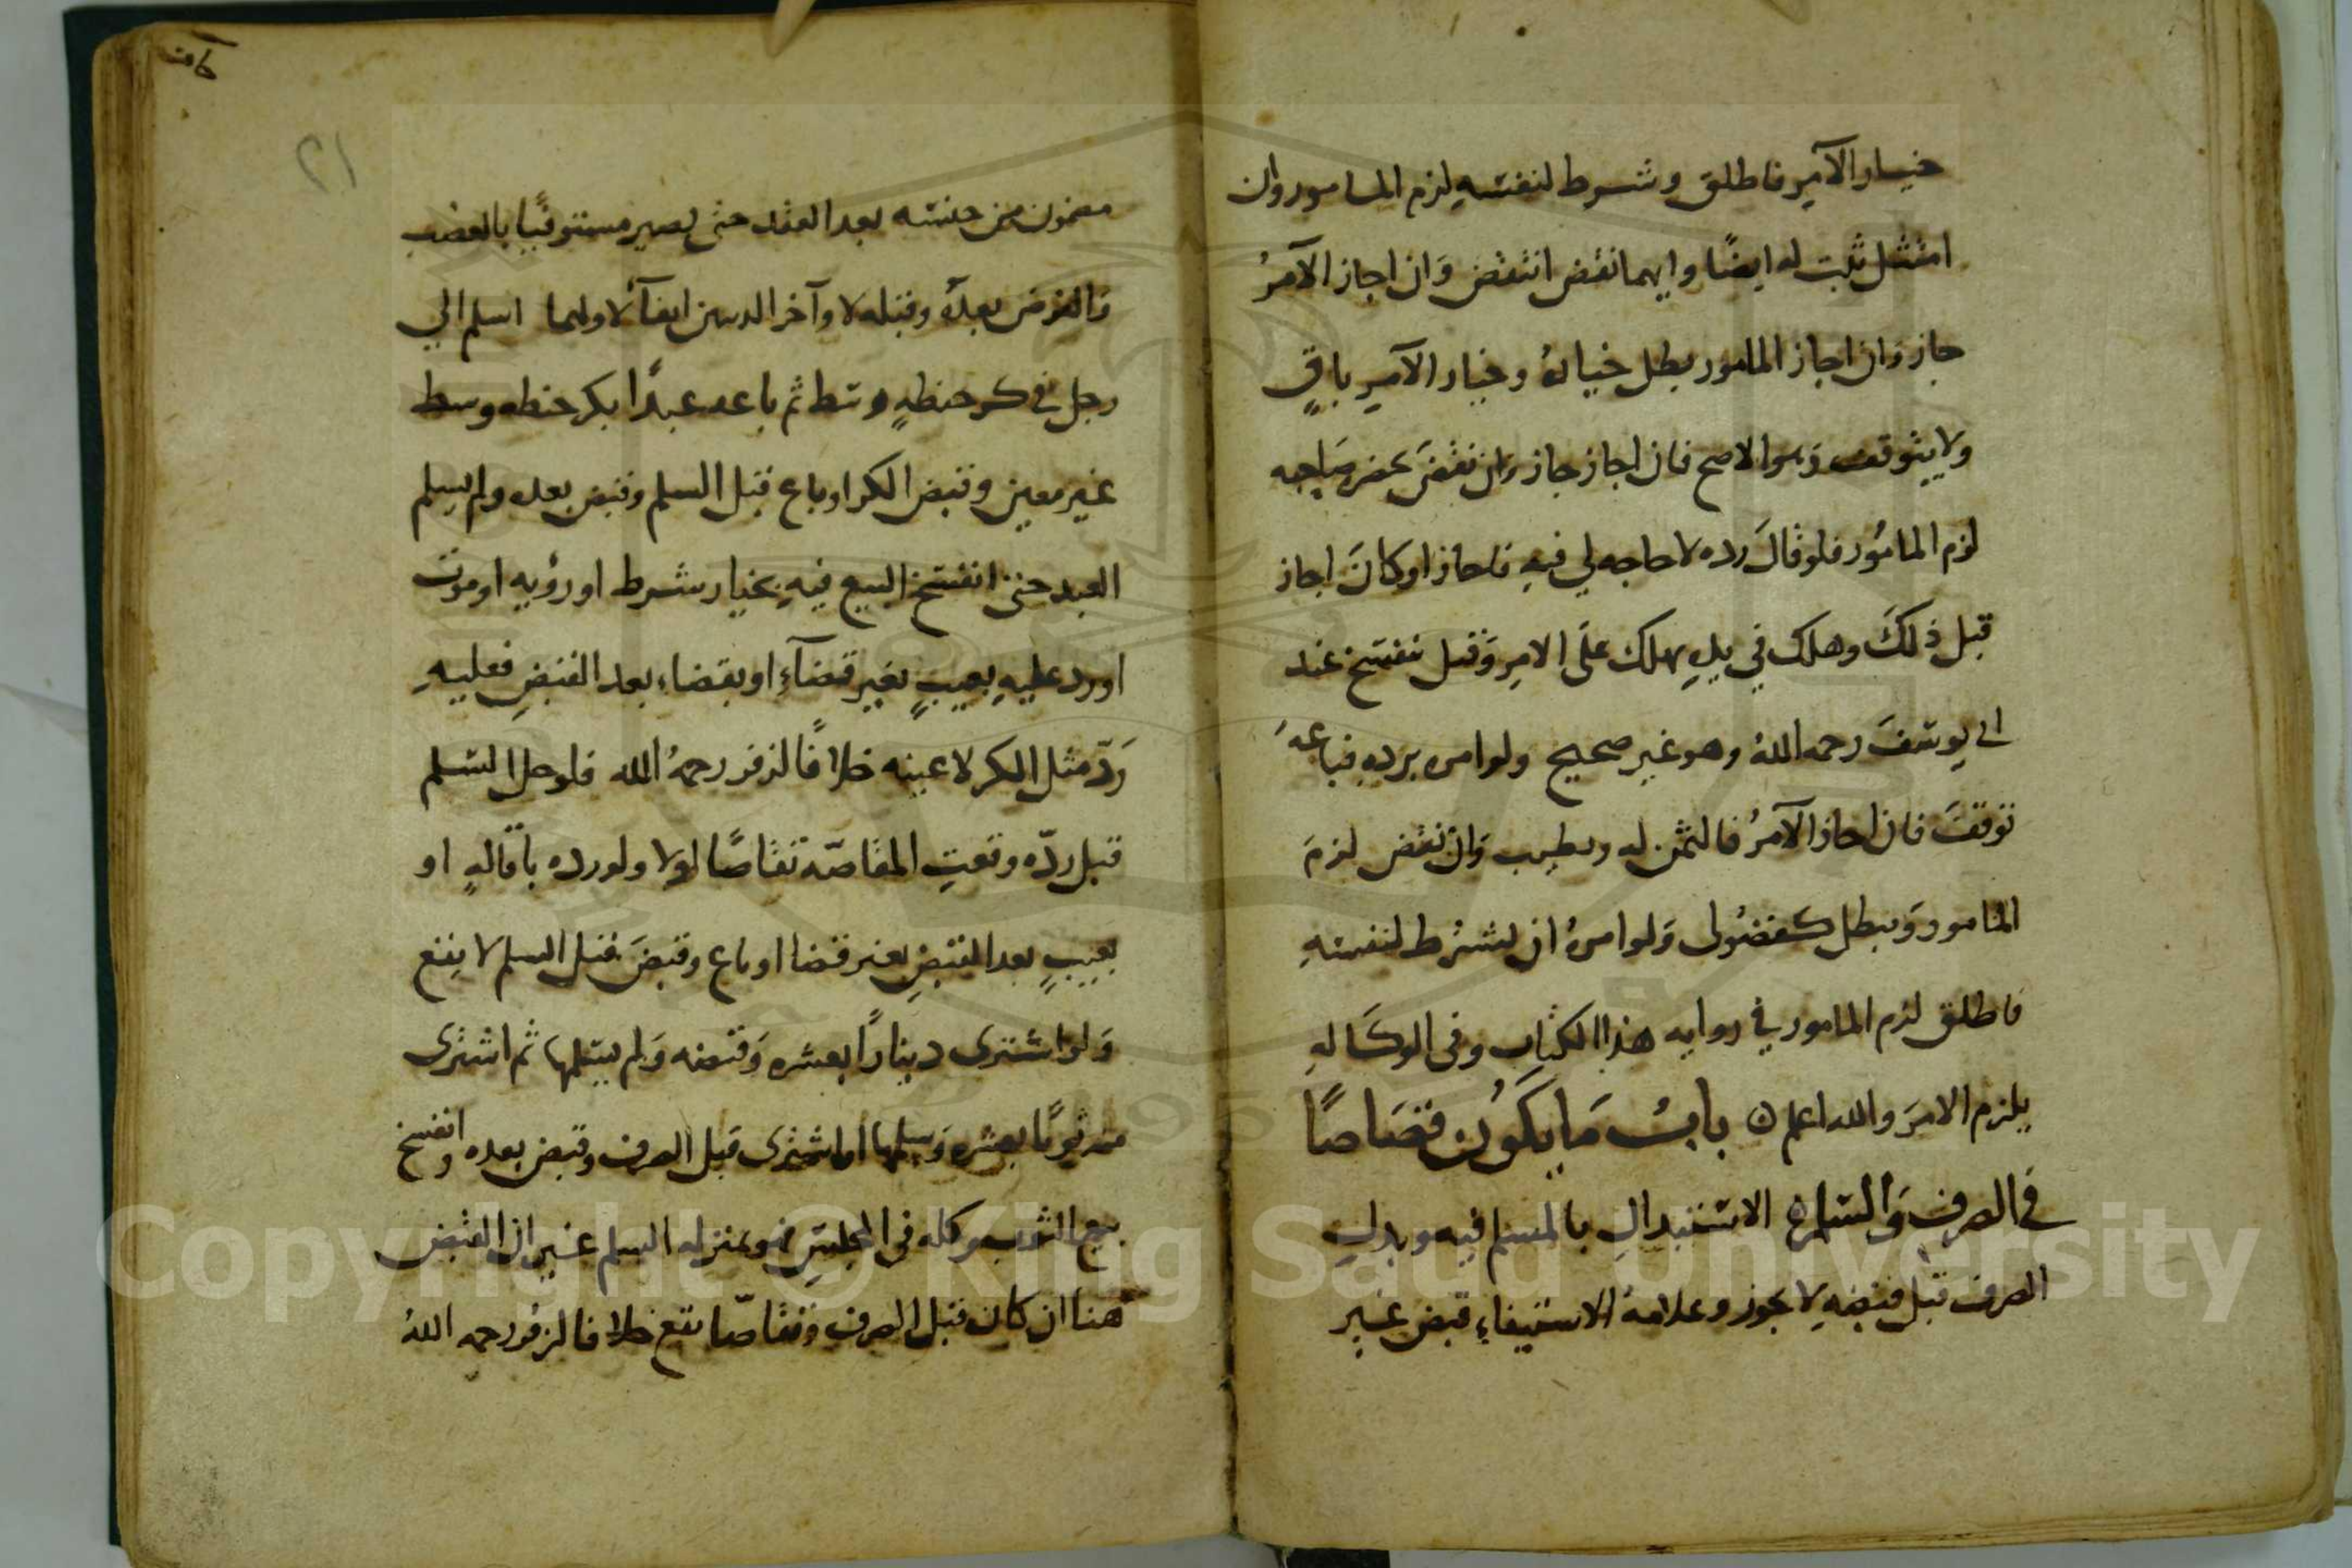 خيار الآمر فاطلق وشرط لنفسه لزم المامور وان
امتثل ثبت له ايضًا وايهما نقض انتقض وان اجاز الآمرُ
جاز وان اجاز المامور بطل خيارهُ وخيار الآمر باقٍ
ولا يتوقف وهو الاصح فان اجاز جاز وان نقض بمحضر صاحبه
لزم المامُور فلو قالَ رده لا حاجه لي فيهِ فاجاز او كانَ اجاز
قبل ذلكَ وهلك في يدهِ يهلك علَى الامِر وقيل ينفسخ عند
ابي يوسفَ رحمه اللهُ وهو غير صحيح ولو امره بردهِ فباعهَ
توقفَ فان اجاز الآمرُ فالثمن له ويطيب وان نقض لزمَ
المامور ويبطل كفضُولى وَلو امرهُ ان يشترط لنفسهِ
فاطلق لزم المامور في روايه هذا الكتاب وفى الوكَالهِ
يلزم الامرَ والله اعلم ن بابُ مَا يكَوُن قصَاصًا
في الصرفِ وَالسلم ن الاستبدالِ بالمسلم فيه وبدلِ
الصرف قبل قبضهِ لا يجوز وعلامهُ الاستيفاءِ قبض غير
كاف
٢١
مضمون من جنسه بعد العقد حتى يصير مستوفيًا بالغصب
والقرض بعدهُ وقبله لا وآخر الدينين ايفآء لاولهما اسلم الي
رجل في كر حنطهٍ وسط ثم باعه عبدًا بكر حنطه وسط
غير معين وقبض الكر او باع قبل السلم وقبض بعده ولم يسلم
العبد حتى انفسخ البيع فيهِ بخيار شرط او رؤيه او موت
او رد عليهِ بعيبٍ بغير قضآءِ او بقضاءِ بعد القبضِ فعليهِ
رَدّ مثل الكر لا عينه خلافًا لزفر رحمهُ الله فلو حل السلم
قبل ردّه وقعتِ المقاصّه تقاصَّا اولا ولو رده باقالهٍ او
بعيبٍ بعد القبضِ بغير قضا او باع وقبضَ قبل السلم لا يقع
وَلو اشترى دينارًا بعشره وَقبضه وَلم يسلمها ثم اشترى
منه ثوبًا بعشره وَسلمها او اشترى قبل الصرف وقبض بعده وانفسخ
بيع الثوب وكله في المجلسِ فهو بمنزله السلم غير ان القبض
هنا ان كان قبل الصرف وتقاصّا يقع خلافا لزفُر رحمه اللهُ
Copyright © King Saud University